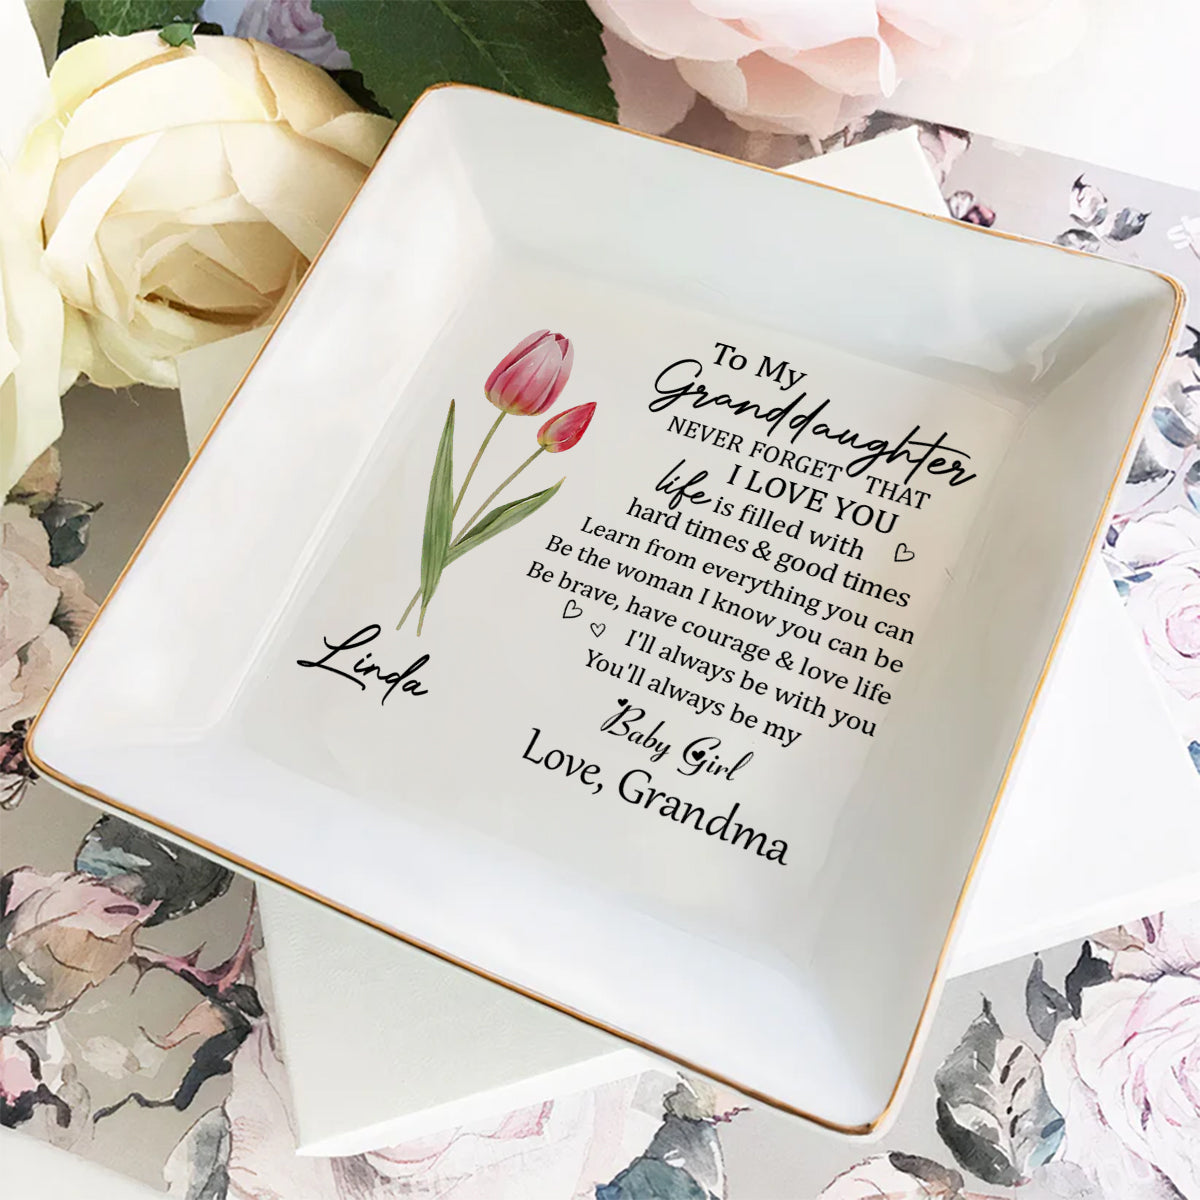 To My
Granddaughter
NEVER FORGET THAT
I LOVE YOU
life is filled with
hard times & good times
Learn from everything you can
Be the woman I know you can be
Be brave, have courage & love life
I'll always be with you
You'll always be my
Baby Girl
Love, Grandma
Linda